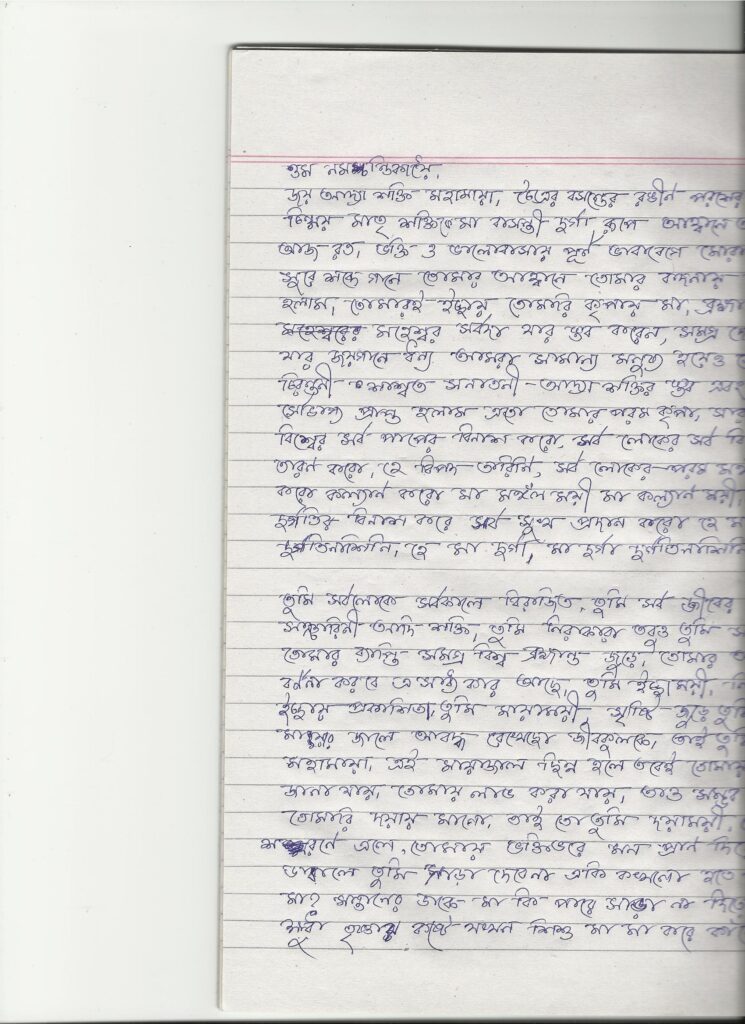 ওম নমশ্চন্ডিকায়ৈ,
জয় আদ্যা শক্তি মহামায়া, চৈত্রের বসন্তের রঙীন পরশের
চিন্ময় মাতৃ শক্তিকে মা বাসন্তী দুর্গা রূপে আহ্বানে
আজ রত, ভক্তি ও ভালোবাসায় পূর্ণ ভাবাবেগে মোরা
সুরে শব্দে গানে তোমার আহ্বানে তোমার বন্দনায়
হলাম, তোমারই ইচ্ছায় তোমারি কৃপায় মা, ব্রহ্মা
মহেশ্বর সর্বদা যার স্তব করেন, সমগ্র
যার জয়গানে ধন্য আমরা সামান্য মনুষ্য হয়েও
চিরন্তনী শাশ্বত সনাতনী-আদ্যা শক্তির স্তব
সৌভাগ্য প্রাপ্ত হলাম এতো তোমার পরম কৃপা,
বিশ্বের সর্ব পাপের বিনাশ করো, সর্ব লোকের সর্ব
তারণ করো, হে বিপদ তারিনি, সর্ব লোকের পরম
করো কল্যান করো মা মঙ্গল ময়ী মা কল্যান ময়ী,
দুর্গতির বিনাশ করে সর্ব সুখ প্রদান করো হে
দুর্গতিনাশিনি, হে মা দুর্গা, মা দুর্গা দুর্গতিনাশিনি
তুমি সর্বলোকে সর্বকালে বিরাজিত, তুমি সর্ব জীবের
সঞ্চারিনী আদি শক্তি, তুমি নিরাকারা তবুও তুমি
তোমার ব্যাপ্তি সমগ্র বিশ্ব ব্রহ্মান্ড জুড়ে, তোমার
বর্ণনা করবে এ সাধ্য কার আছে, তুমি ইচ্ছাময়ী,
ইচ্ছায় প্রকাশিতা, তুমি মায়াময়ী, সৃষ্টি জুড়ে তুমি
মায়ার জালে আবদ্ধ রেখেছো জীবকুলকে, তাই তুমি
মহামায়া, এই মায়াজাল ছিন্ন হলে তবেই তোমায়
জানা যায়, তোমায় লাভ করা যায়, তাও সম্ভব
তোমারি দয়ায় মাগো, তাই তো তুমি দয়াময়ী,
শরণে এলে, তোমায় ভক্তিভরে মন প্রান দিয়ে
ডাকলে তুমি সাড়া দেবেনা একি কখনো হতে
মা? সন্তানের ডাকে মা কি পারে সাড়া না দিতে
ক্ষুধা তৃষ্ণার কষ্টে যখন শিশু মা মা করে